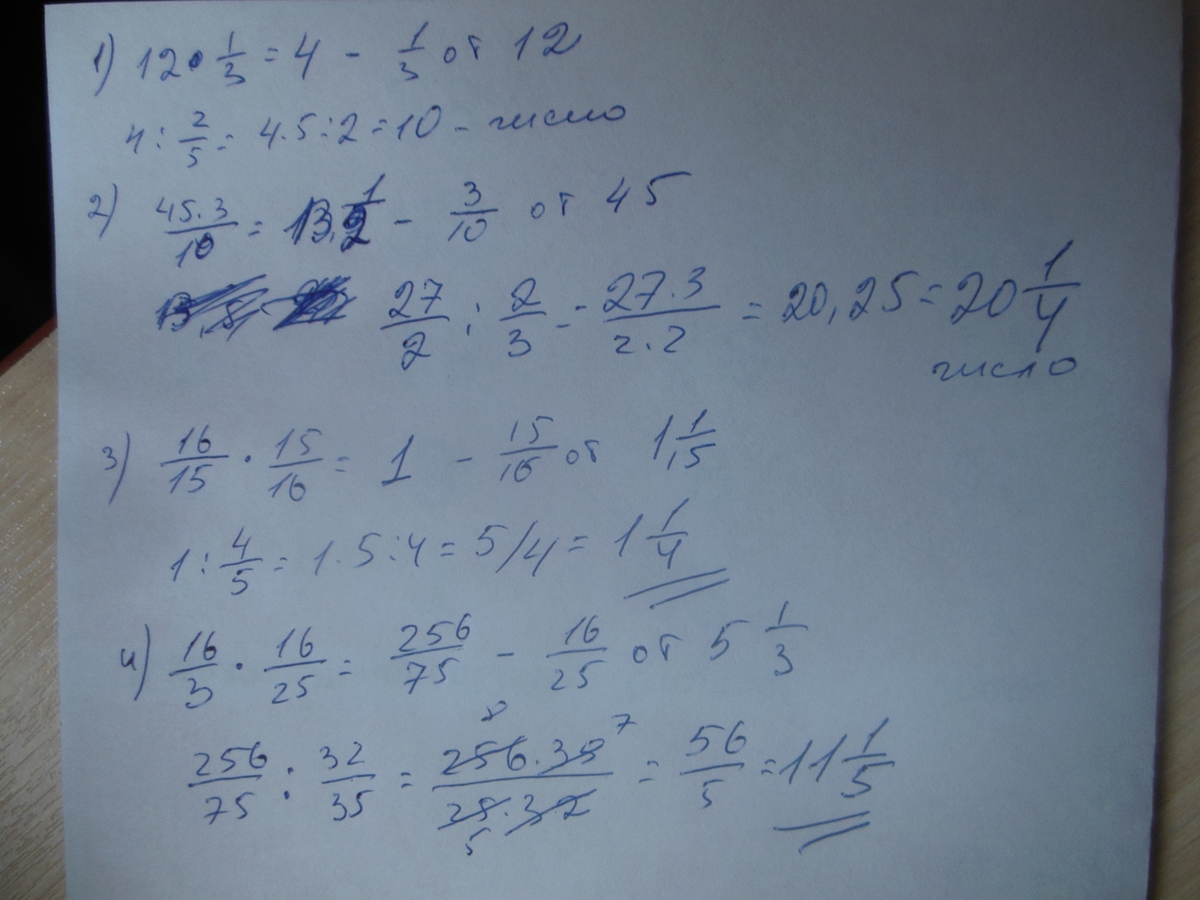 1) 12 · 1/3 = 4 - 1/3 от 12
4 : 2/5 = 4·5:2 = 10 - число
2) 45·3/10 = 13 1/2 - 3/10 от 45
27/2 : 2/3 = 27·3/2·2 = 20,25 = 20 1/4
число
3) 16/15 · 15/16 = 1 - 15/16 от 1 1/15
1 : 4/5 = 1·5:4 = 5/4 = 1 1/4
4) 16/3 · 16/25 = 256/75 - 16/25 от 5 1/3
8 7
256/75 : 32/35 = 256·35/25·32 = 56/5 = 11 1/5
5